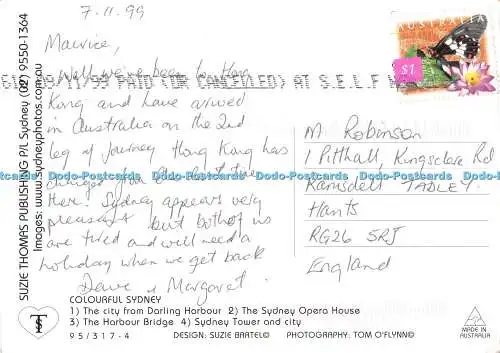 7.11.99
Maurice,
Well we've been to Hong
Kong and have arrived
in Australia on the 2nd
leg of journey Hong Kong has
changed
Sydney appears very
pleasant but both of us
are tired and will need a
holiday when we get back
Dave & Margaret.
M Robinson
1 Pitthall, Kingsclere Rd
Ramsdell TADLEY.
Hants
RG26 5RJ
England
AUSTRALIA
$1
09/11/99 PAID (OR CANCELLED) AT S.E.L.F
SUZIE THOMAS PUBLISHING P/L Sydney (02) 9550-1364
Images: www.sydneyphotos.com.au
COLOURFUL SYDNEY
1) The city from Darling Harbour 2) The Sydney Opera House
3) The Harbour Bridge 4) Sydney Tower and city
95/317-4 DESIGN: SUZIE BARTEL© PHOTOGRAPHY: TOM O'FLYNN©
MADE IN
AUSTRALIA
Dodo-Postcards Dodo-Postcards Dodo-Postcards Dodo-Postcards